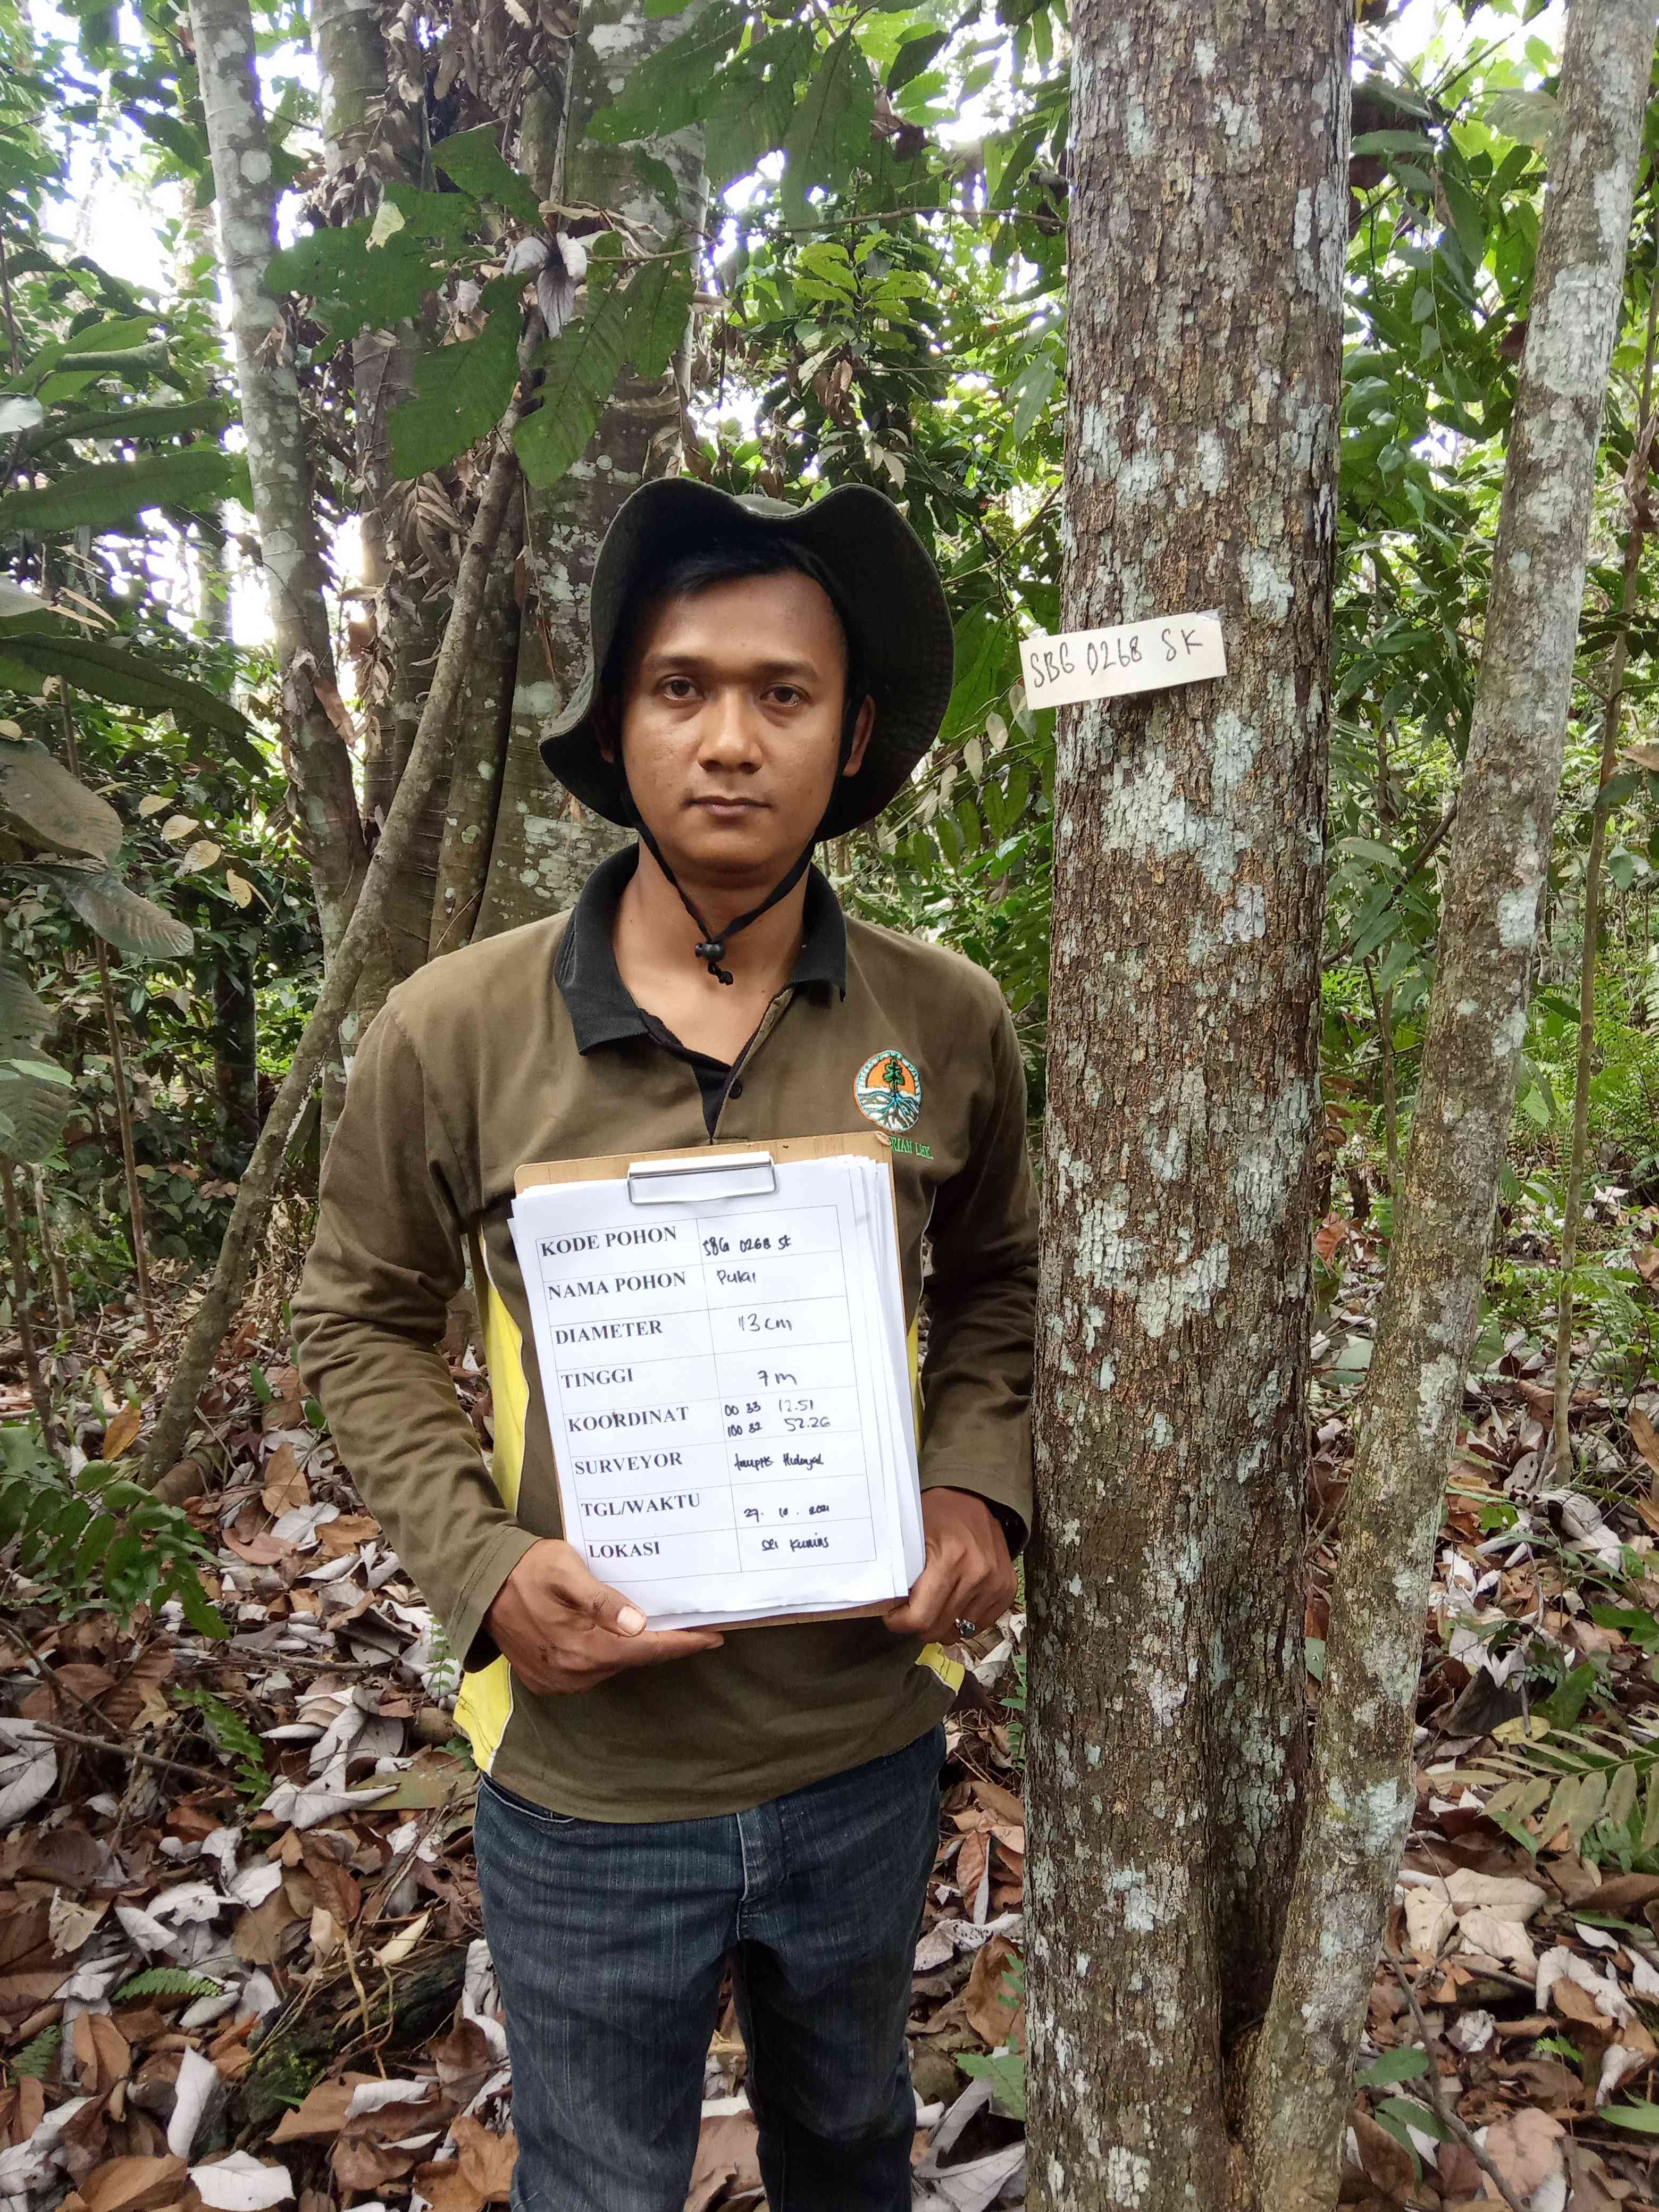 SBG 0268 SK
KODE POHON SBG 0268 SK
NAMA POHON Pulai
DIAMETER 13 cm
TINGGI 7 m
KOORDINAT 00 33 12.51
100 32 52.26
SURVEYOR Hidayat
TGL/WAKTU 27. 10. 2021
LOKASI